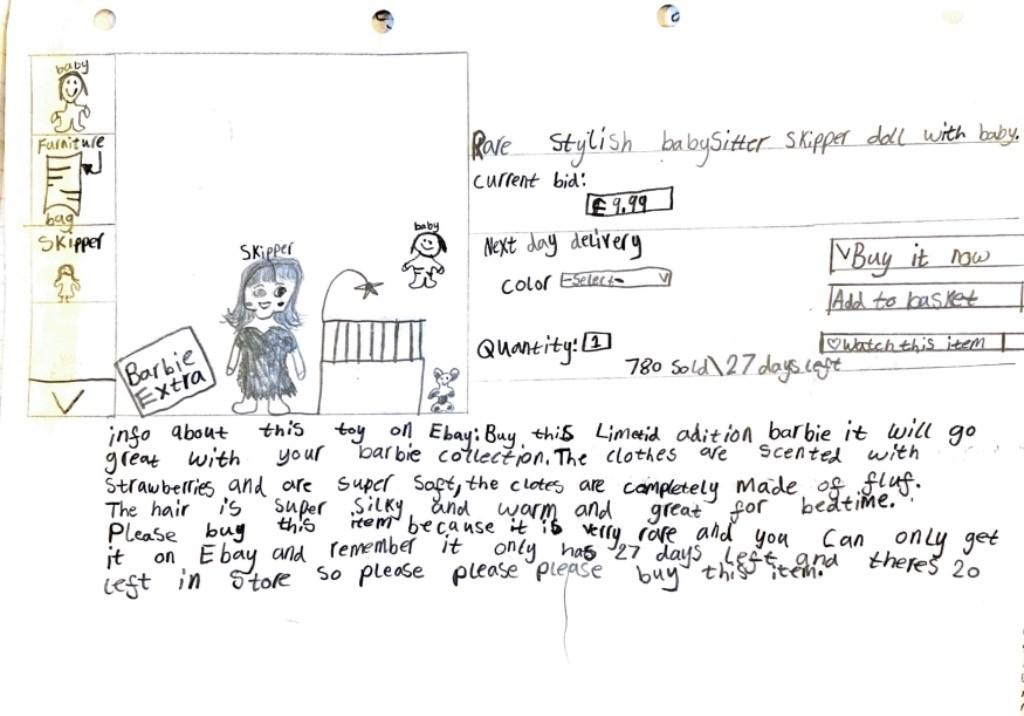 baby
Furniture
bag
Skipper
Skipper
baby
Barbie
Extra
Rare Stylish babysitter skipper doll with baby.
current bid:
£9.99
Next day delivery
color -Select-
Quantity: 1
780 Sold\27 days left
Buy it now
Add to basket
♡Watch this item
info about this toy on Ebay: Buy this Limetid adition barbie it will go
great with your barbie collection. The clothes are scented with
strawberries and are super soft, the clotes are completely made of fluf.
The hair is super silky and warm and great for bedtime.
Please buy this item because it is verry rare and you can only get
it on Ebay and remember it only has 27 days left and theres 20
left in store so please please please buy this item.